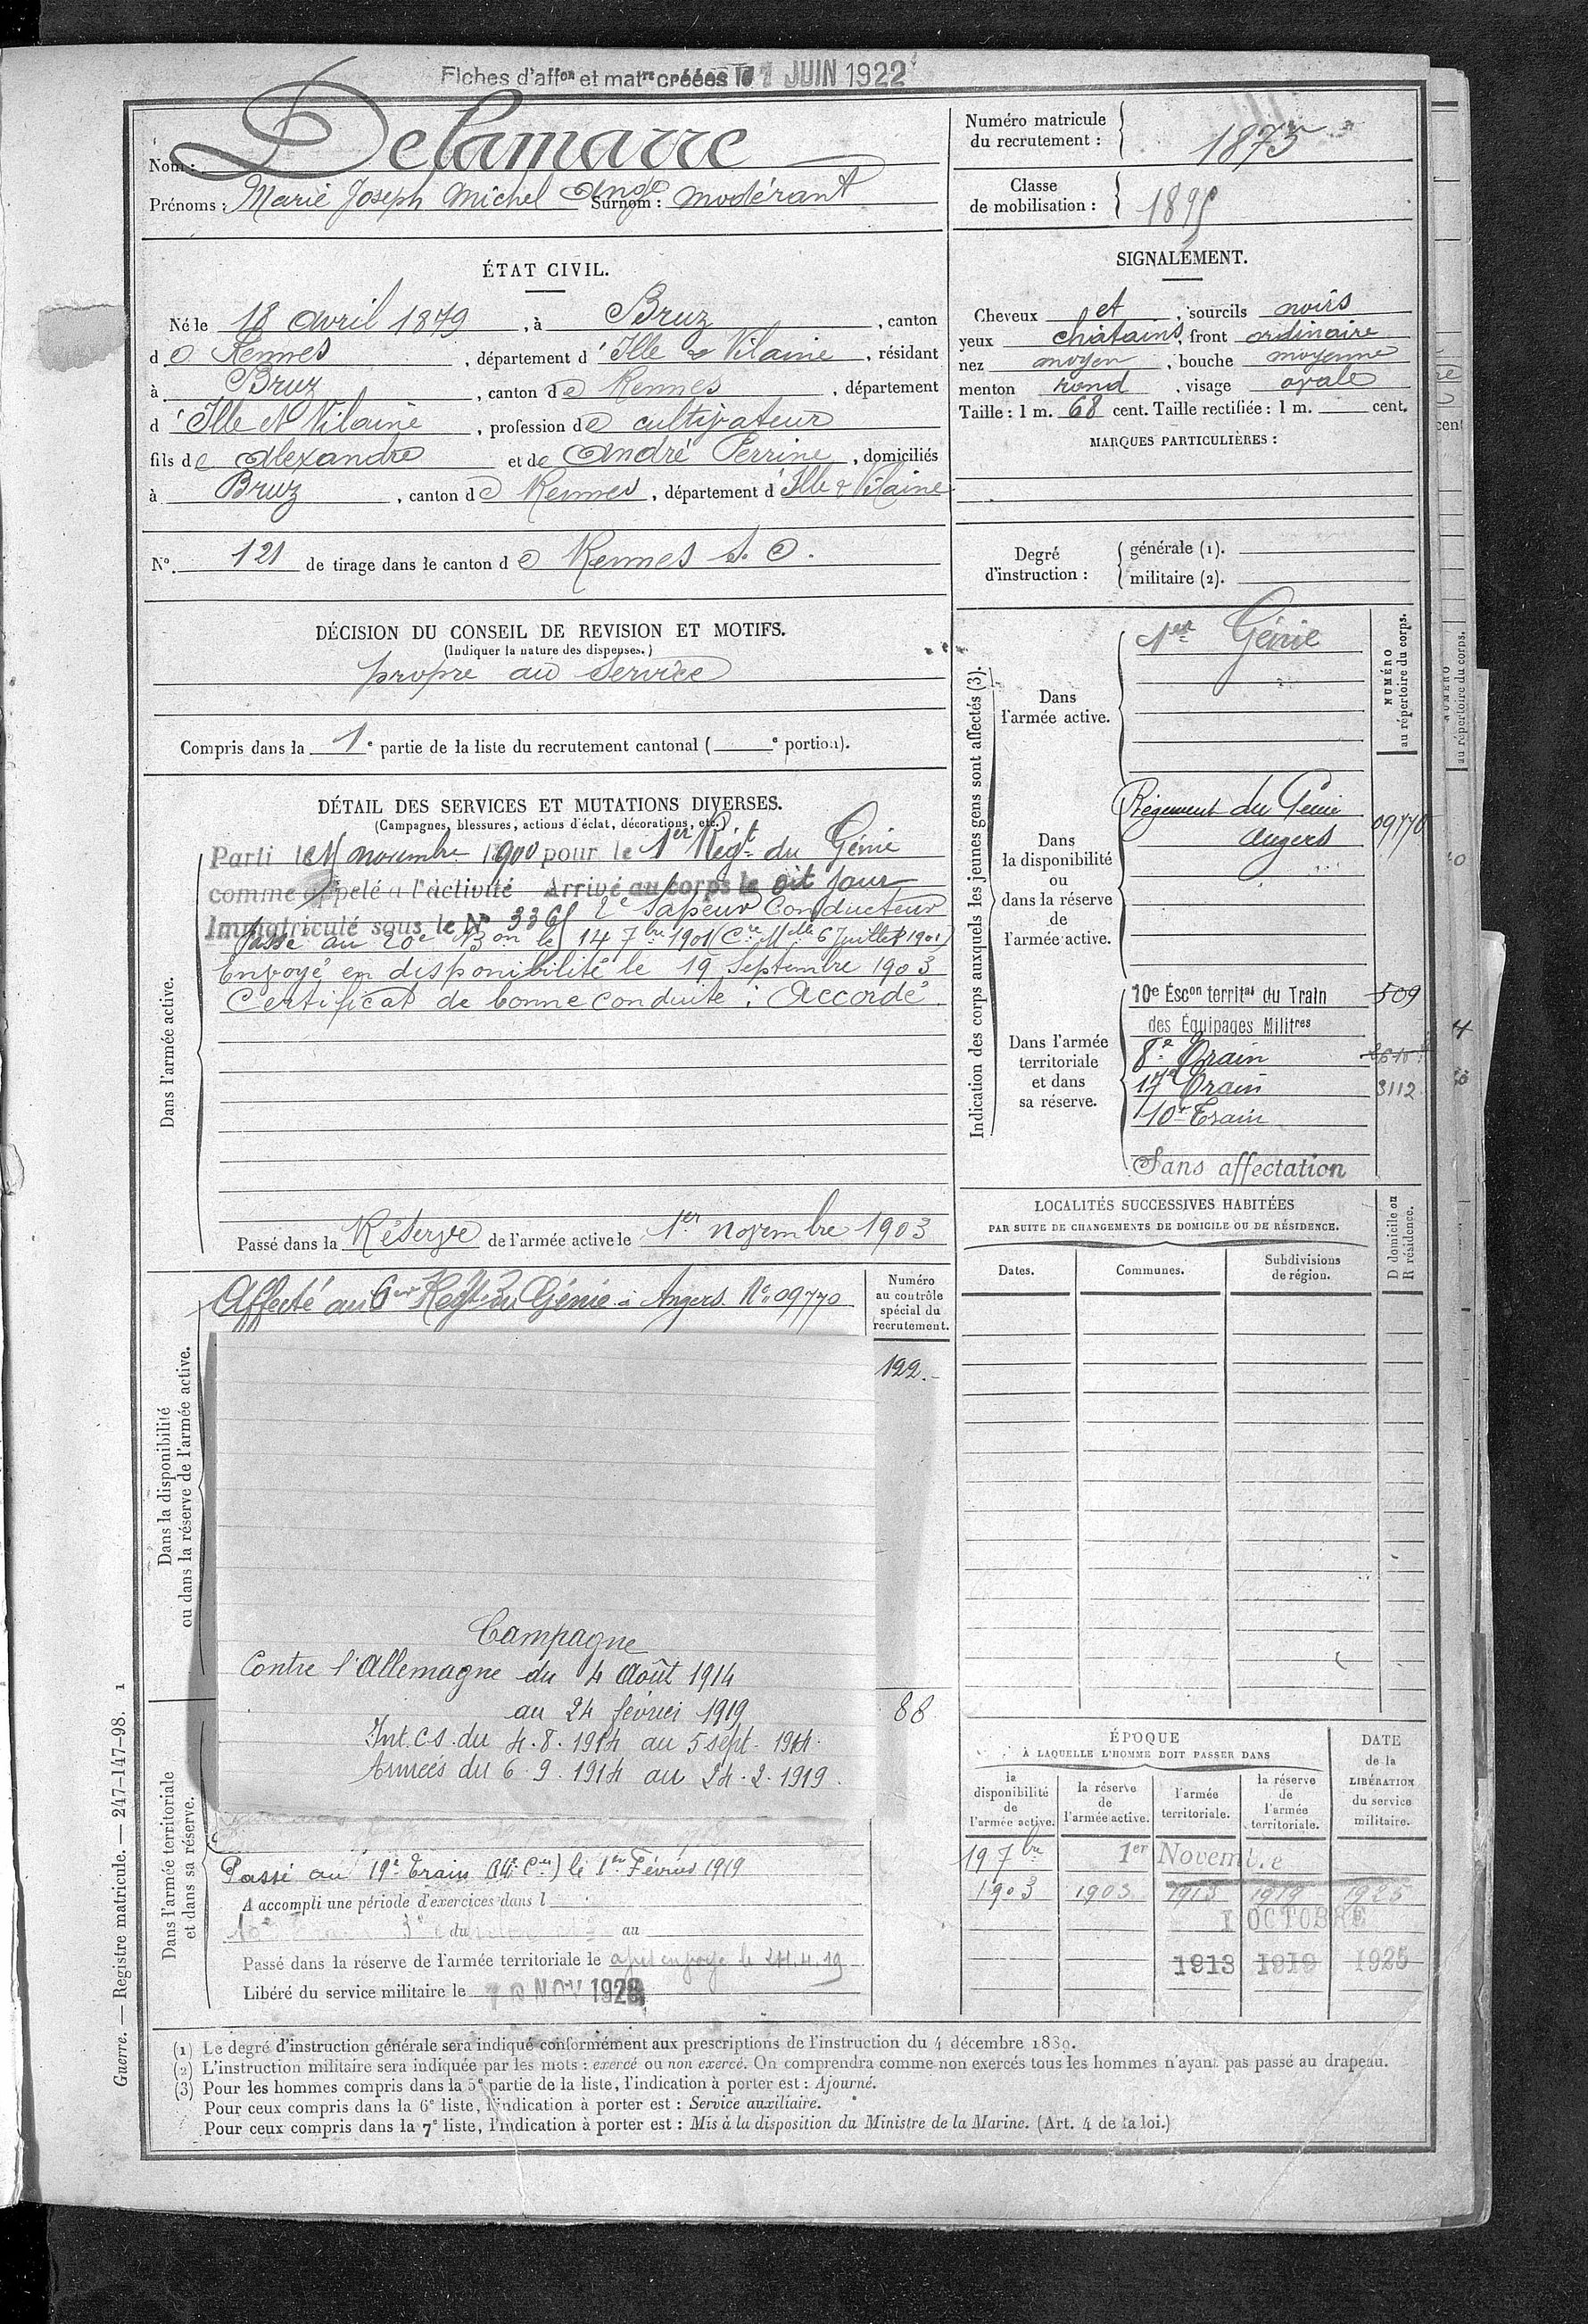 Fiches d'affon et matre créées le 1 JUIN 1922
Nom : Delamarre
Prénoms : Marie Joseph Michel Ange Surnom : modérant
Numéro matricule du recrutement : 1873
Classe de mobilisation : 189
ÉTAT CIVIL.
Né le 18 avril 1879, à Bruz, canton
de Rennes, département d'Ille & Vilaine, résidant
à Bruz, canton de Rennes, département
d'Ille et Vilaine, profession de cultivateur
fils de Alexandre et de André Perrine, domiciliés
à Bruz, canton de Rennes, département d'Ille & Vilaine
N° 121 de tirage dans le canton de Rennes S. O.
DÉCISION DU CONSEIL DE REVISION ET MOTIFS.
(Indiquer la nature des dispenses.)
propre au service
Compris dans la 1e partie de la liste du recrutement cantonal ( e portion).
SIGNALEMENT.
Cheveux et, sourcils noirs
yeux châtains, front ordinaire
nez moyen, bouche moyenne
menton rond, visage ovale
Taille : 1 m. 68 cent. Taille rectifiée : 1 m. cent.
MARQUES PARTICULIÈRES :
Degré d'instruction : générale (1).
militaire (2).
DÉTAIL DES SERVICES ET MUTATIONS DIVERSES.
(Campagnes, blessures, actions d'éclat, décorations, etc.)
Dans l'armée active.
Parti le novembre 1900 pour le 1er Régt du Génie
comme appelé à l'activité Arrivé au corps le dit jour
Immatriculé sous le N° 2e Sapeur Conducteur
Passé au 20e Bon le 14 7bre 1901 (Cre Mlle 6 Juillet 1901)
Envoyé en disponibilité le 19 Septembre 1903
Certificat de bonne conduite : Accordé
Passé dans la Réserve de l'armée active le 1er novembre 1903
Indication des corps auxquels les jeunes gens sont affectés (3).
NUMÉRO au répertoire du corps.
Dans l'armée active.
1er Génie
Dans la disponibilité ou dans la réserve de l'armée active.
Régiment du Génie
Angers
09770
Dans l'armée territoriale et dans sa réserve.
10e Escon territal du Train 509
des Équipages Militres
8e Train
17e Train 3112
10e Train
Sans affectation
LOCALITÉS SUCCESSIVES HABITÉES
PAR SUITE DE CHANGEMENTS DE DOMICILE OU DE RÉSIDENCE.
Dates. Communes. Subdivisions de région.
D domicile ou R résidence.
Dans la disponibilité ou dans la réserve de l'armée active.
Affecté au 6e Régt du Génie à Angers N° 09770
Numéro au contrôle spécial du recrutement.
122.
Campagne
Contre l'Allemagne du 4 Août 1914
au 24 février 1919
Int. C.S. du 4.8.1914 au 5 sept. 1914.
Armées du 6.9.1914 au 24.2.1919.
88
Dans l'armée territoriale et dans sa réserve.
Passé au 19e Train (14e Cie) le 1er Février 1919
A accompli une période d'exercices dans l
du au
Passé dans la réserve de l'armée territoriale le 24.4.19
Libéré du service militaire le 10 NOV 1928
ÉPOQUE
À LAQUELLE L'HOMME DOIT PASSER DANS
la disponibilité de l'armée active.
la réserve de l'armée active.
l'armée territoriale.
la réserve de l'armée territoriale.
DATE de la LIBÉRATION du service militaire.
19 7bre 1er Novembre
1903 1903 1913 1919 1925
1 OCTOBRE
1913 1919 1925
(1) Le degré d'instruction générale sera indiqué conformément aux prescriptions de l'instruction du 4 décembre 1889.
(2) L'instruction militaire sera indiquée par les mots : exercé ou non exercé. On comprendra comme non exercés tous les hommes n'ayant pas passé au drapeau.
(3) Pour les hommes compris dans la 5e partie de la liste, l'indication à porter est : Ajourné.
Pour ceux compris dans la 6e liste, l'indication à porter est : Service auxiliaire.
Pour ceux compris dans la 7e liste, l'indication à porter est : Mis à la disposition du Ministre de la Marine. (Art. 4 de la loi.)
Guerre. — Registre matricule. — 247-147-98. 1